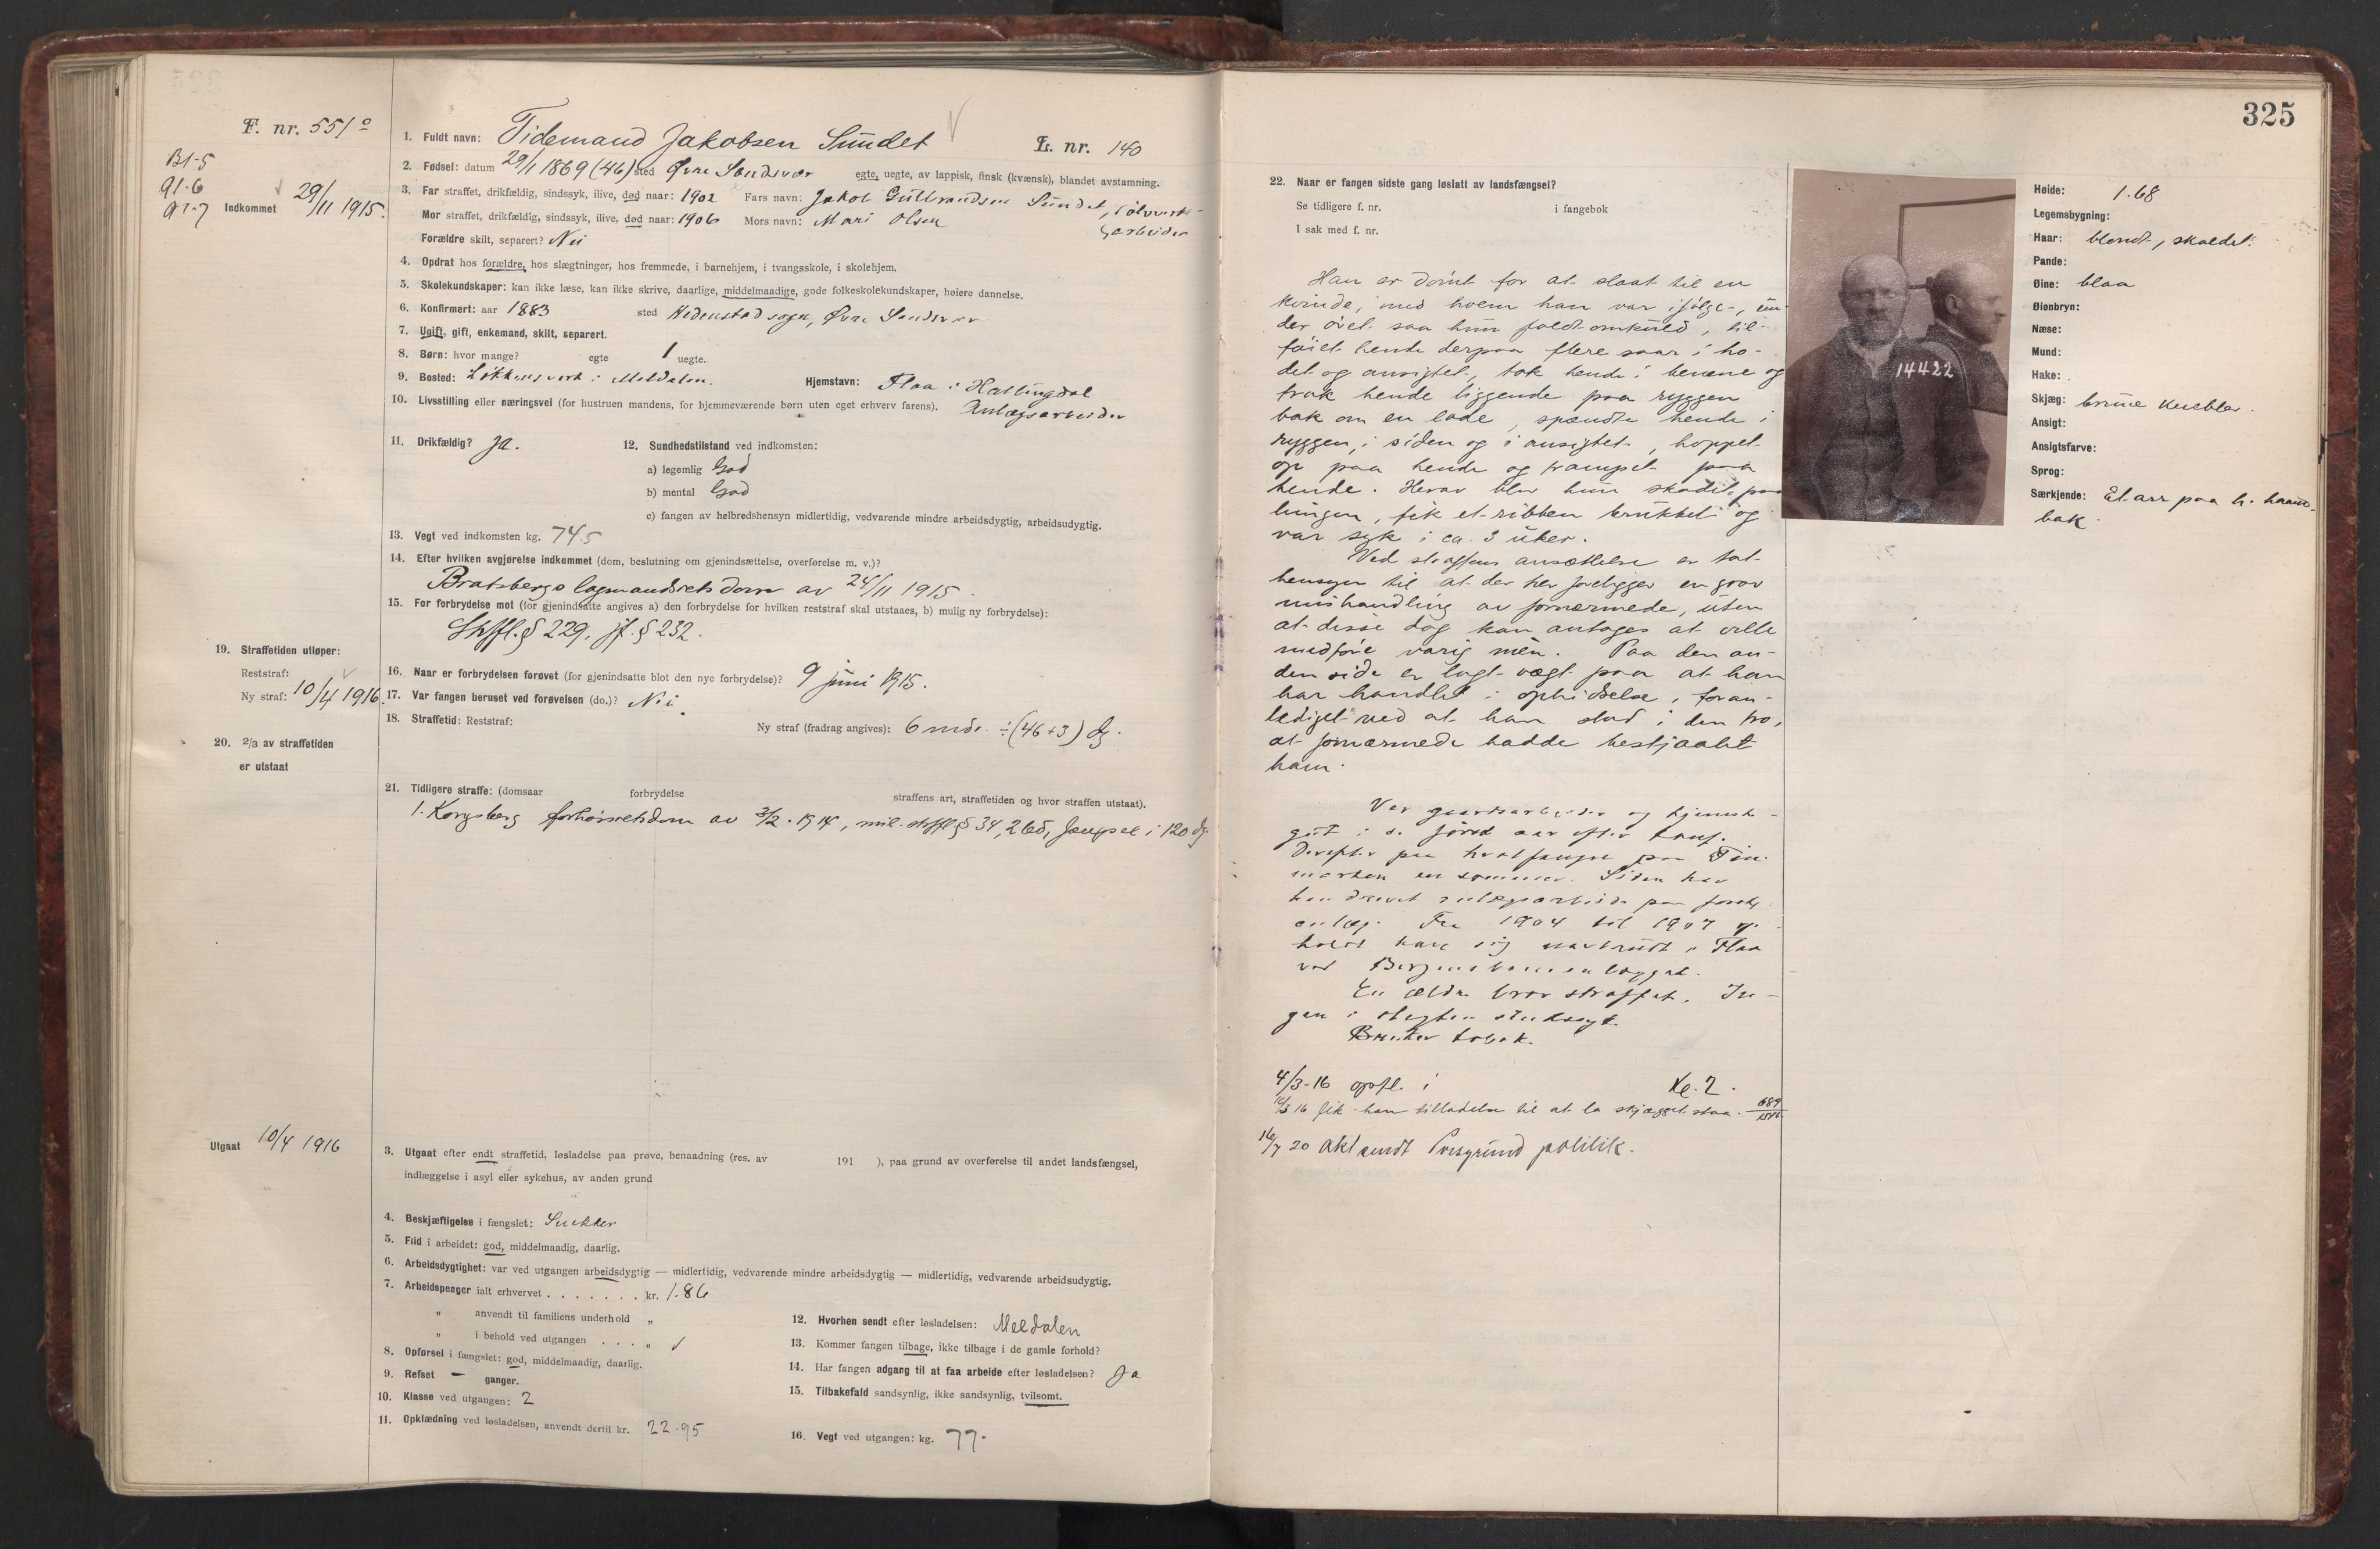 F. nr. 551°
B1-5
91-6
91-7
Indkommet 29/11 1915.
1. Fuldt navn: Tidemand Jakobsen Sundet
L. nr. 140
2. Fødsel: datum 29/1 1869 (46) sted Øvre Sandsvær egte, uegte, av lappisk, finsk (kvænsk), blandet avstamning.
3. Far straffet, drikfældig, sindssyk, ilive, død naar: 1902 Fars navn: Jakob Gulbrandsen Sundet, sølvverks-
Mor straffet, drikfældig, sindssyk, ilive, død naar: 1906 Mors navn: Mari Olsen arbeider
Forældre skilt, separert? Nei
4. Opdrat hos forældre, hos slægtninger, hos fremmede, i barnehjem, i tvangsskole, i skolehjem.
5. Skolekundskaper: kan ikke læse, kan ikke skrive, daarlige, middelmaadige, gode folkeskolekundskaper, høiere dannelse.
6. Konfirmert: aar 1883 sted Hedenstad sogn, Øvre Sandsvær
7. Ugift, gift, enkemand, skilt, separert.
8. Børn: hvor mange? egte 1 uegte.
9. Bosted: Løkkens verk i Meldalen. Hjemstavn: Flaa i Hallingdal
10. Livsstilling eller næringsvei (for hustruen mandens, for hjemmeværende børn uten eget erhverv farens). Anlægsarbeider
11. Drikfældig? Ja. 12. Sundhedstilstand ved indkomsten:
a) legemlig God
b) mental God
c) fangen av helbredshensyn midlertidig, vedvarende mindre arbeidsdygtig, arbeidsudygtig.
13. Vegt ved indkomsten kg. 74.5
14. Efter hvilken avgjørelse indkommet (dom, beslutning om gjenindsættelse, overførelse m. v.)?
Bratsbergs lagmandsrets dom av 24/11 1915.
15. For forbrydelse mot (for gjenindsatte angives a) den forbrydelse for hvilken reststraf skal utstaaes, b) mulig ny forbrydelse):
Strffl. § 229, jf. § 232.
19. Straffetiden utløper:
Reststraf:
Ny straf: 10/4 1916.
16. Naar er forbrydelsen forøvet (for gjenindsatte blot den nye forbrydelse)? 9 juni 1915.
17. Var fangen beruset ved forøvelsen (do.)? Nei.
18. Straffetid: Reststraf: Ny straf (fradrag angives): 6 mdr. ÷ (46+3) dg.
20. 2/3 av straffetiden
er utstaat
21. Tidligere straffe: (domsaar forbrydelse straffens art, straffetiden og hvor straffen utstaat).
1. Kongsberg forhørsretsdom av 3/2. 1914, mil. strffl. § 34, 2 led, fængsel i 120 dg
Utgaat 10/4 1916
3. Utgaat efter endt straffetid, løsladelse paa prøve, benaadning (res. av 191 ), paa grund av overførelse til andet landsfængsel,
indlæggelse i asyl eller sykehus, av anden grund
4. Beskjæftigelse i fængslet: Snekker
5. Flid i arbeidet: god, middelmaadig, daarlig.
6. Arbeidsdygtighet: var ved utgangen arbeidsdygtig — midlertidig, vedvarende mindre arbeidsdygtig — midlertidig, vedvarende arbeidsudygtig.
7. Arbeidspenger ialt erhvervet . . . . . . . kr. 1.86
" anvendt til familiens underhold "
" i behold ved utgangen . . . "
8. Opførsel i fængslet: god, middelmaadig, daarlig.
9. Refset — ganger.
10. Klasse ved utgangen: 2
11. Opklædning ved løsladelsen, anvendt dertil kr. 22.95
12. Hvorhen sendt efter løsladelsen: Meldalen
13. Kommer fangen tilbage, ikke tilbage i de gamle forhold?
14. Har fangen adgang til at faa arbeide efter løsladelsen? Ja
15. Tilbakefald sandsynlig, ikke sandsynlig, tvilsomt.
16. Vegt ved utgangen: kg. 77.
325
22. Naar er fangen sidste gang løslatt av landsfængsel?
Se tidligere f. nr. i fangebok
I sak med f. nr.
Han er dømt for at slaat til en
kvinde, med hvem han var i følge, un-
der øret saa hun faldt omkuld, til-
føiet hende derpaa flere saar i ho-
det og ansigtet, tok hende i benene og
trak hende liggende paa ryggen
bak om en lade, spændte hende i
ryggen, i siden og i ansigtet, hoppet
op paa hende og trampet paa
hende. Herav blev hun skadet paa
lungen, fik et ribben brukket og
var syk i ca. 3 uker.
Ved straffens ansættelse er tat
hensyn til at der her foreligger en grov
mishandling av fornærmede, uten
at disse dog kan antages at ville
medføre varig mén. Paa den an-
den side er lagt vægt paa at han
har handlet i ophidselse, foran-
lediget ved at han stod i den tro,
at fornærmede hadde bestjaalet
ham.
Var gaardsarbeider og tjeneste-
gut i de første aar efter konf.
Derefter paa hvalfangst paa Fin-
marken en sommer. Siden har
han drevet anlægsarbeide paa forskj.
anlæg. Fra 1904 til 1907 op-
holdt han sig uavbrudt i Flaa
ved Bergensbaneanlægget.
En ældre bror straffet. In-
gen i slegten sindssyk.
Bruker tobak.
4/3-16 opfl. i Kl. 2.
16 fik han tilladelse til at la skjægget staa. 689
16/7 20 akt sendt Porsgrund politik.
14422
Høide: 1.68
Legemsbygning:
Haar: blondt, skaldet.
Pande:
Øine: blaa
Øienbryn:
Næse:
Mund:
Hake:
Skjæg: brune knebler.
Ansigt:
Ansigtsfarve:
Sprog:
Særkjende: Et arr paa h. haand-
bak.